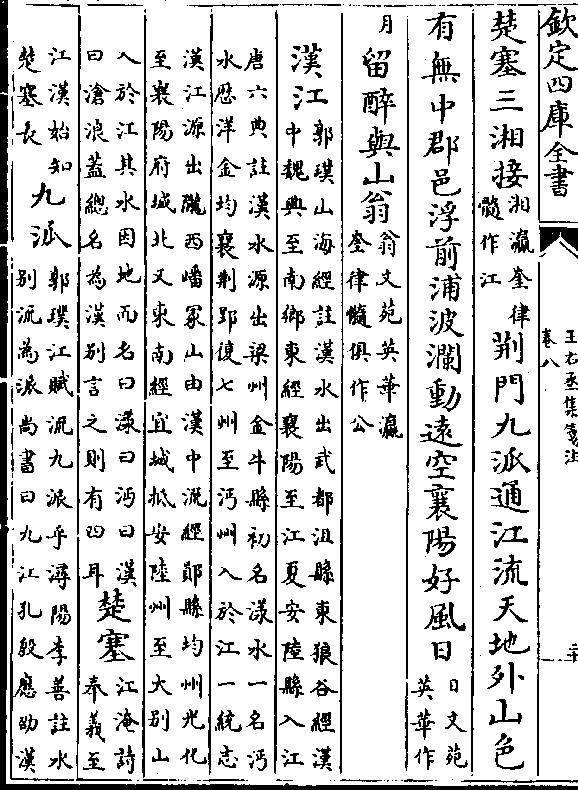 欽定四庫全書
王右丞集箋注
卷八
二十一
楚塞三湘接湘瀛奎律髓作江荆門九派通江流天地外山色
有無中郡邑浮前浦波瀾動遠空襄陽好風日日文苑英華作
月留醉與山翁翁文苑英華瀛奎律髓俱作公
漢江郭璞山海經註漢水出武都沮縣東狼谷經漢中魏興至南鄉東經襄陽至江夏安陸縣入江
唐六典註漢水源出梁州金牛縣初名漾水一名沔水歴洋金均襄荆郢復七州至沔州入於江一統志
漢江源出隴西嶓冢山由漢中流經鄖縣均州光化至襄陽府城北又東南經宜城抵安陸州至大别山
入於江其水因地而名曰漾曰沔曰漢曰滄浪蓋總名為漢别言之則有四耳楚塞江淹詩奉義至
江漢始知楚塞長九派郭璞江賦流九派乎潯陽李善註水别流為派尚書曰九江孔殷應劭漢